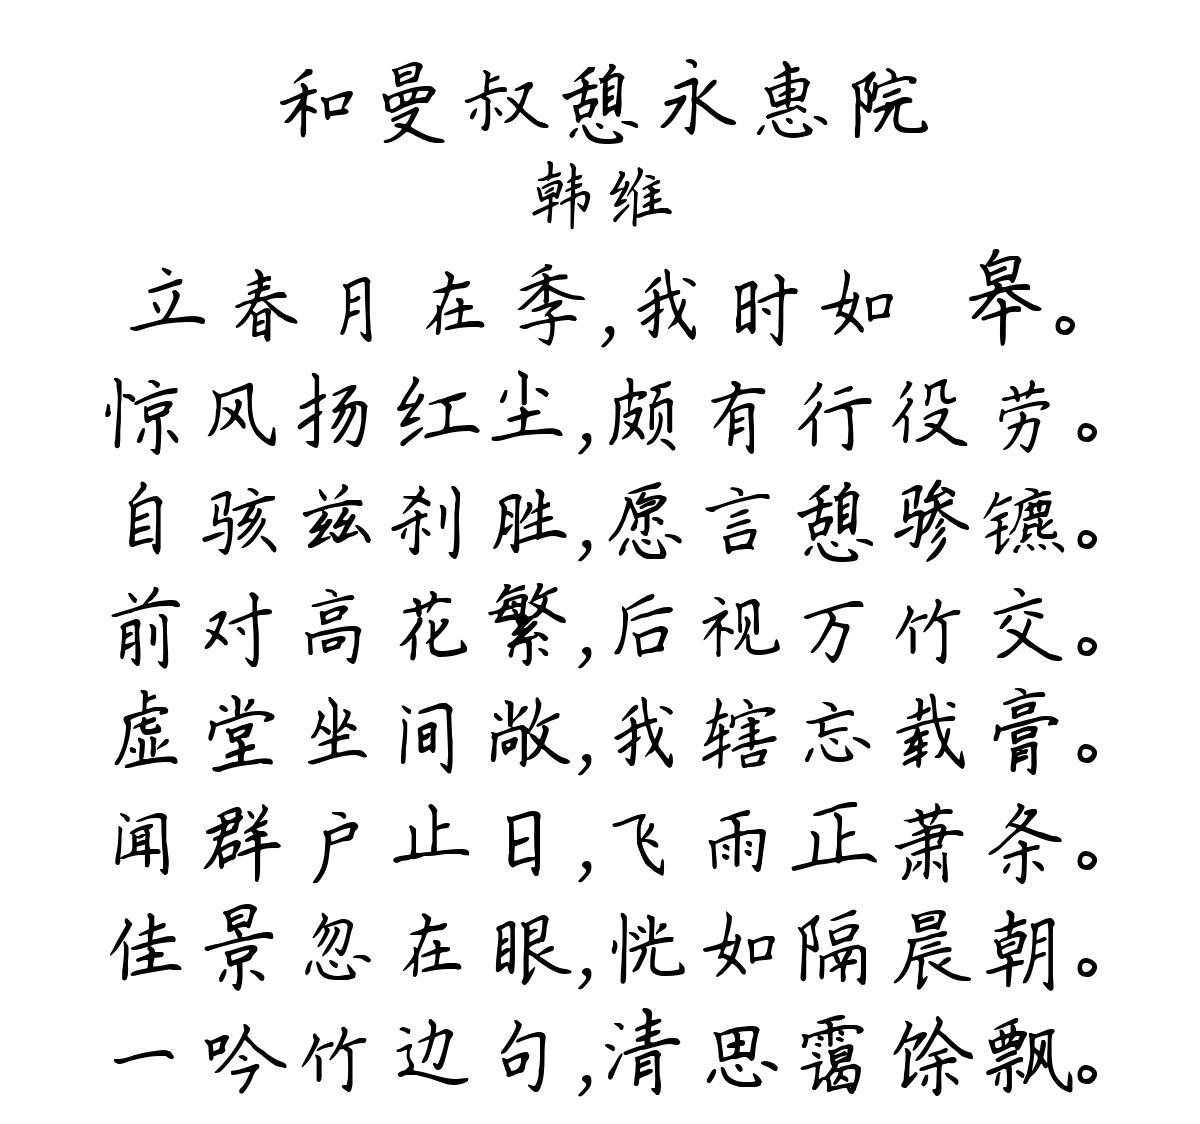 和曼叔憩永惠院
韩维
立春月在季,我时如 皋。
惊风扬红尘,颇有行役劳。
自骇兹刹胜,愿言憩骖镳。
前对高花繁,后视万竹交。
虚堂坐间敞,我辖忘载膏。
闻群户止日,飞雨正萧条。
佳景忽在眼,恍如隔晨朝。
一吟竹边句,清思霭馀飘。